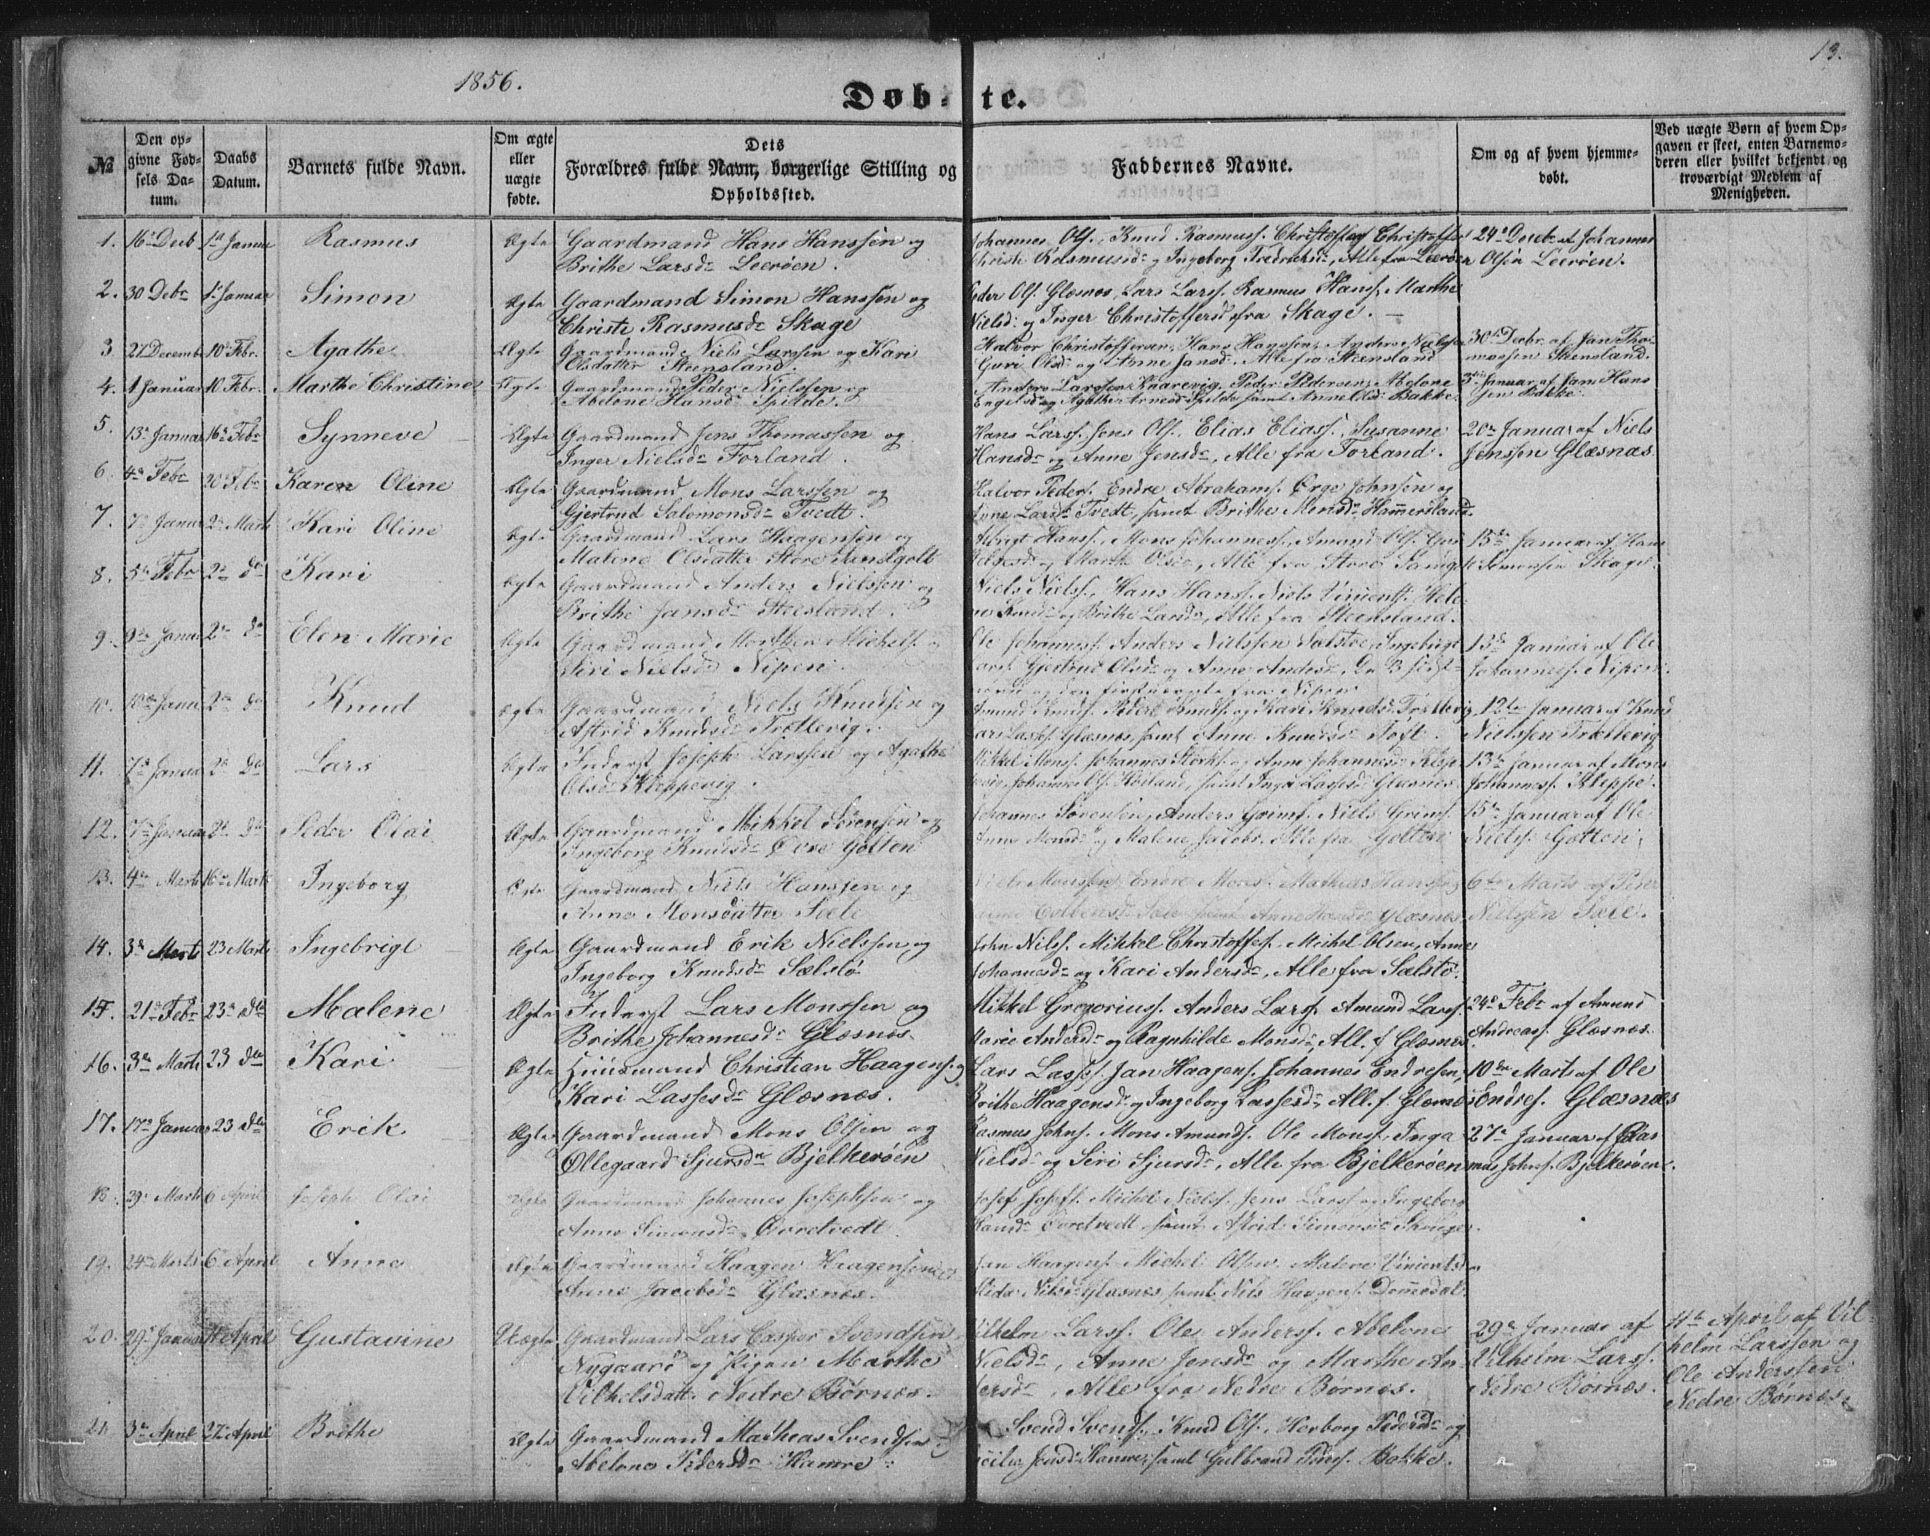 1856.
13.
Døbte.
№
Den opgivne Fødsels Datum.
Daabs Datum.
Barnets fulde Navn.
Om ægte eller uægte fødte.
Dets Forældres fulde Navn, borgerlige Stilling og Opholdssted.
Faddernes Navne.
Om og af hvem hjemmedøbt.
Ved uægte Børn af hvem Opgaven er skeet, enten Barnemoderen eller hvilket bekjendt og troværdigt Medlem af Menigheden.
1. 16de Decb 1ste Januar Rasmus Ægte Gaardmand Hans Hanssen og
Brithe Larsdr Leerøen.
Johannes Ols. Knud Rasmuss. Christoffer Christoffers
Christi Rasmusdr og Ingeborg Fredriksdr, Alle fra Leerøen
24de Decbr af Johannes
Olsen Leerøen.
2. 30 Debr 1ste Januar Simon Ægte Gaardmand Simon Hanssen og
Christi Rasmusdr Skage
Peder Ols. Glæsnes, Lars Larss. Rasmus Hanss. Marthe
Nielsdr og Inger Christoffersd fra Skage.
3 21 Decemb 10de Febr. Agathe Ægte Gaardmand Niels Larssen og Kari
Olsdatter Steensland.
Halvor Christoffersen, Hans Hanssen, Anders Nielsen
Guri Olsdr og Anne Jansd. Alle fra Steensland
30te Decbr. af Jan Tho-
massen Stensland.
4. 1 Januar 10 Febr. Marthe Christine Ægte Gaardmand Peder Nielssen og
Abelone Hansdr Spilde.
Anders Larssen Knarrevig. Peder Pedersen, Abelone
Engelsd og Agathe Arnesd Spilde samt Anne Olsd Bakke
3die Januar af Jan Hans
sen Bakke
5 13de Januar 16de Febr Synneve Ægte Gaardmand Jens Thomassen og
Inger Nielsdr Forland.
Hans Larss. Jens Ols. Elias Eliass. Susanne
Hansdr og Anne Jensdr, Alle fra Forland.
20de Januar af Niels
Jenssen Glæsnæs
6 4de Febr 20de Febr Karen Oline Ægte Gaardmand Mons Larssen og
Gjertrud Salomonsdr Tvedt.
Halvor Peders. Endre Abrahams. Ørge Johnsen og
Anne Larsdr Tvedt, samt Brithe Monsdr Hammersland.
7. 7de Januar 2de Marts Kari Oline Ægte Gaardmand Lars Haagensen og
Malene Olsdatter Store Sandgolt
15de Januar af Hans
Simonsen Skage.
8. 5te Febr 2de do Kari Ægte Gaardmand Anders Nielssen og
Brithe Jansdr Steensland.
Niels Nielss. Hans Hanss. Niels Vincents.
Knudsdr og Brithe Larsdr, Alle fra Steensland.
9. 9de Januar 2de do Elen Marie Ægte Gaardmand Morthen Michels.
Siri Nielsdr Nipen.
Ole Johannes. Anders Nielssen Sælstøe, Ingebrigt
Gjertrud Olsdr og Anne Andersd.
fra Nipen
13de Januar af Ole
Johannes. Nipen
10. 10de Januar 2de do Knud Ægte Gaardmand Niels Knudssen og
Astrid Knudsdr Trættevig.
Amund Knuds. Peder Knuds. og Kari Knudsdr Trættevig
Lars Larss. Glæsnes, samt Anne Knudsdr Toft.
12te Januar af Knud
Nielssen Trættevig
11. 7de Januar 2de do Lars Ægte Inderst Joseph Larssen og Agathe
Olsdr Kleppevig.
Mikkel Mons. Johannes og Anne Johannesd Klep-
Johannes Ols. Høiland, samt Inger Lassesdr Glæsnes
13de Januar af Mons
Johannes. Kleppe.
12. 7de Januar 2de do Peder Olai Ægte Gaardmand Mikkel Sørensen og
Ingeborg Knudsdr Øvre Golten
Johannes Sørensen, Anders Grims. Niels Grims.
Anne Monsdr og Malene Jacobs. Alle fra Golten
15de Januar af Ole
Niels. Gotten.
13. 4de Marts 16de Marts Ingeborg Ægte Gaardmand Niels Hanssen og
Anne Monsdatter Sæle
Niels Monssen, Endre Mons. Mathias Hanssen
Sæle samt Anne Hansdr Glæsnes.
6te Marts af Peder
Nielssen Sæle.
14. 3de Marts 23 Marts Ingebrigt Ægte Gaardmand Erik Nielssen og
Ingeborg Knudsdr Sælstø
John Nils. Mikkel Christoffes. Michel Olsen, Anne
Johannesdr og Kari Andersdr, Alle fra Sælstø.
15. 21de Febr 23de do Malene Ægte Inderst Lars Monssen og
Brithe Johannesdr Glæsnes.
Mikkel Gregoriuss. Anders Larss. Amund Larss.
Marie Andersdr og Ragnhilde Monsdr, All. f Glæsnes.
24de Febr af Amund
Andreass. Glæsnes.
16. 3de Marts 23 do Kari Ægte Huusmand Christian Haagens. og
Kari Lassesdr Glæsnes.
Lars Lasses. Jan Haagens. Johannes Endresen,
Brithe Haagensdr og Ingeborg Lassesdr, All. f Glæsnes
10de Marts af Ole
Endres. Glæsnæs
17. 17de Januar 23 do Erik Ægte Gaardmand Mons Olsen og
Ollegaard Sjursdr Bjelkerøen
Rasmus Johns. Mons Amunds. Ole Monss. Inga
Nielsdr og Siri Sjursdr, Alle fra Bjelkerøen
27de Januar af Ras
mus Johns. Bjelkerøen.
18. 29de Marts 6 April Joseph Olai Ægte Gaardmand Johannes Josephsen og
Anne Simonsdr Øvretvedt.
Josef Josefs. Mikkel Niels. Jens Larss og Ingeborg
Hansdr Øvretvedt samt Astrid Simonsdr Skage.
19. 24de Marts 6te April Anne Ægte Gaardmand Haagen Haagensen og
Anne Jacobsdr Glæsnes.
Jan Haagens. Michel Olsen, Malene Vincentsdr
Nilsdr Glæsnes samt Nils Haagens. Dommedal
20. 29de Januar April Gustavine Uægte Gaardmand Lars Casper Svendsen
Nygaard og Pigen Marthe
Vilhelsdatt. Nedre Børnes.
Vilhelm Larss. Ole Anderss. Abelone
Nielsdr, Anne Jensdr og Marthe An
dersdr, Alle fra Nedre Børnes.
29de Januar af
Vilhelm Larss.
Nedre Børnes.
11te April af Vil-
helm Larssen og
Ole Anderssen
Nedre Børnes.
21 3de April 27de April Brithe Ægte Gaardmand Mathias Svendsen
Abelone Pedersdr Hamre
Svend Svends. Knud Ols. Herborg Pedersdr og
Cicilie Jensdr Hamre, samt Gulbrand Bakke.